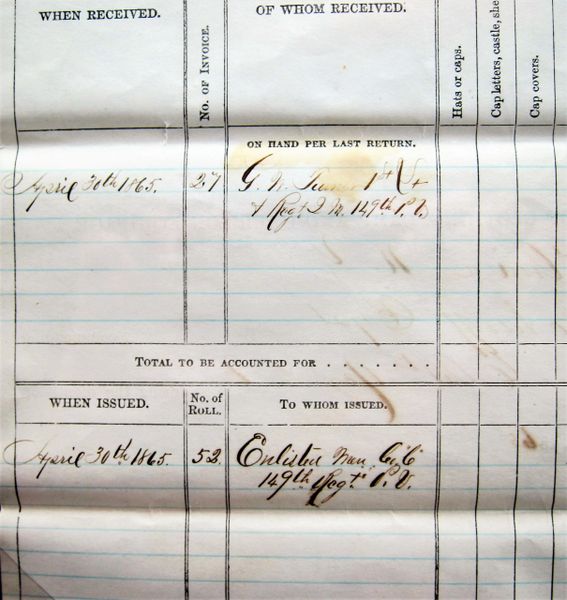 WHEN RECEIVED.
No. OF INVOICE.
OF WHOM RECEIVED.
Hats or caps.
Cap letters, castle, she
Cap covers.
ON HAND PER LAST RETURN.
April 30th 1865. 27 G. W. 1st Lt
& Regt Q M. 149th P. V.
TOTAL TO BE ACCOUNTED FOR . . . . . . .
WHEN ISSUED.
No. of
ROLL.
TO WHOM ISSUED.
April 30th 1865. 52 Enlisted Men Co. "C"
149th Regt P. V.